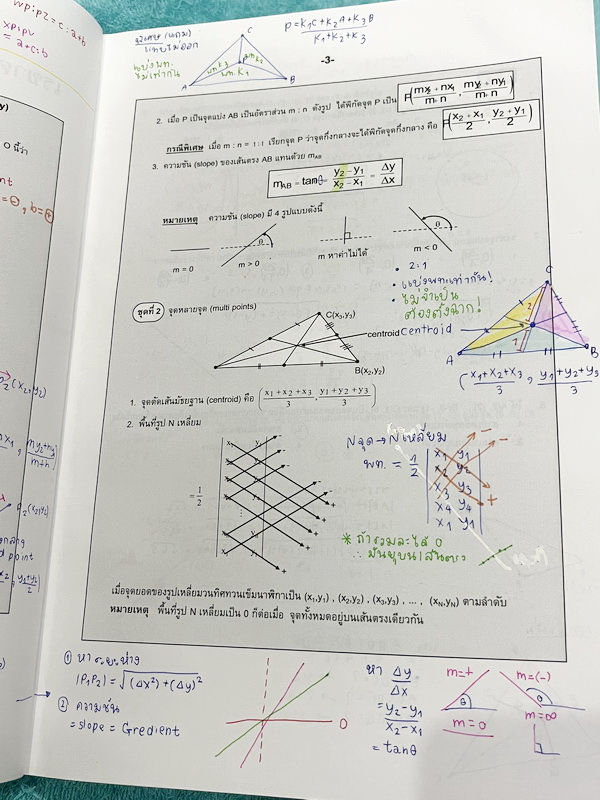 พิเศษ (แถม)
แทบไม่ออก
แบ่งพท.
ไม่เท่ากัน
C
A
B
P = K₁C + K₂A + K₃B
K₁+K₂+K₃
-3-
2. เมื่อ P เป็นจุดแบ่ง AB เป็นอัตราส่วน m : n ดังรูป ได้พิกัดจุด P เป็น P(mx₂ + nx₁ / m+n , my₂ + ny₁ / m+n)
กรณีพิเศษ เมื่อ m : n = 1:1 เรียกจุด P ว่าจุดกึ่งกลางจะได้พิกัดจุดกึ่งกลาง คือ P(x₂ + x₁ / 2 , y₂ + y₁ / 2)
3. ความชัน (slope) ของเส้นตรง AB แทนด้วย mAB
mAB = tanθ = y₂ – y₁ / x₂ – x₁ = Δy / Δx
หมายเหตุ ความชัน (slope) มี 4 รูปแบบดังนี้
θ
θ
m = 0
m > 0
m หาค่าไม่ได้
m < 0
• 2:1
• แบ่งพท.เท่ากัน!
• ไม่จำเป็น
ต้องตั้งฉาก!
ชุดที่ 2 จุดหลายจุด (multi points)
C(x₃,y₃)
centroid
B(x₂,y₂)
centroid
C
2
1
A
B
(x₁+x₂+x₃ / 3 , y₁+y₂+y₃ / 3)
1. จุดตัดเส้นมัธยฐาน (centroid) คือ (x₁ + x₂ + x₃ / 3 , y₁ + y₂ + y₃ / 3)
2. พื้นที่รูป N เหลี่ยม
= 1/2
N จุด → N เหลี่ยม
พท. = 1/2
x₁ y₁
x₂ y₂
x₃ y₃
x₄ y₄
x₁ y₁
* ถ้ารวมละได้ 0
∴ มันอยู่บน 1 เส้นตรง
เมื่อจุดยอดของรูปเหลี่ยมวนทิศทวนเข็มนาฬิกาเป็น (x₁,y₁) , (x₂,y₂) , (x₃,y₃) , ... , (xN,yN) ตามลำดับ
หมายเหตุ พื้นที่รูป N เหลี่ยมเป็น 0 ก็ต่อเมื่อ จุดทั้งหมดอยู่บนเส้นตรงเดียวกัน
① หาระยะห่าง
|P₁P₂| = √(Δx²)+(Δy)²
② ความชัน
= slope = Gredient
0
หา Δy / Δx
= y₂-y₁ / x₂-x₁
= tanθ
m=+
θ
m=0
m=(-)
θ
m=∞